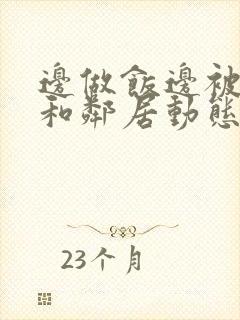 邊做飯邊被
和鄰居動態
23个月